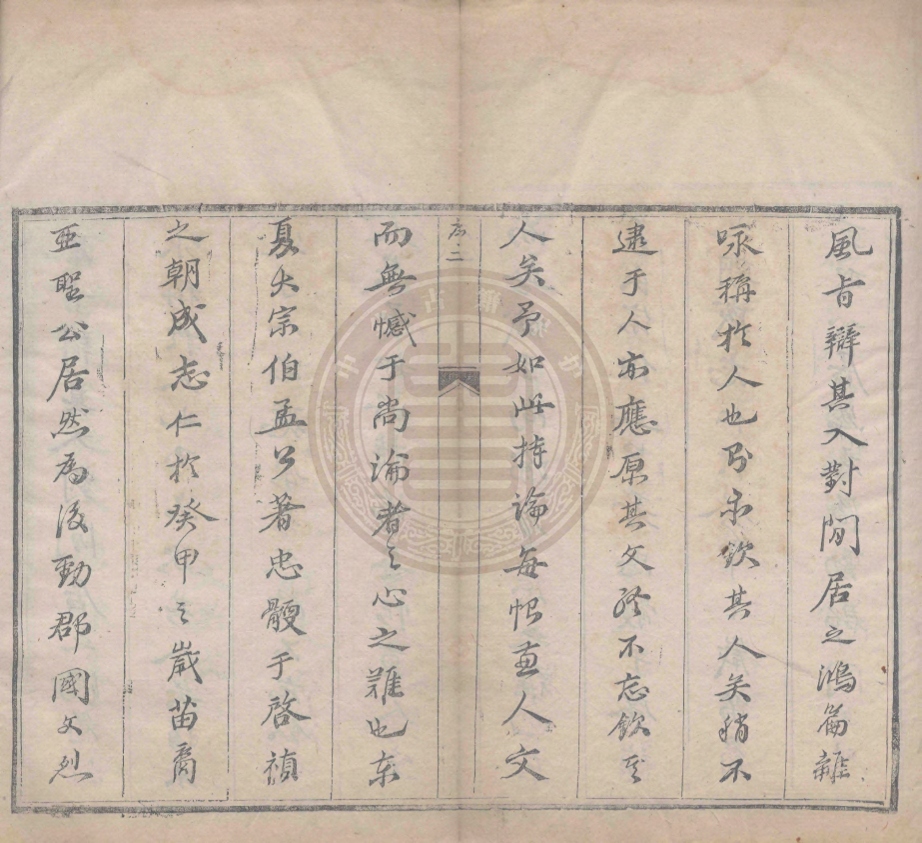 風旨辯其入對閒居之鴻篇雖
咏稱於人也即亦欽其人矣稍不
逮于人亦應原其文終不忘欽其
人矣予如此持論每恨兼人文
序二
而無憾于尚論者之心之難也東
夏大宗伯孟公著忠骾于啓禎
之朝成志仁於癸甲之歲苗裔
亞聖公居然為後勁郡國文烈